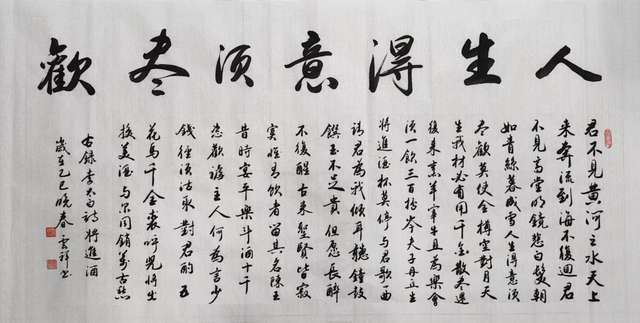 人生得意須盡歡
君不見黃河之水天上
來奔流到海不復迴君
不見高堂明鏡悲白髮朝
如青絲暮成雪人生得意須
盡歡莫使金樽空對月天
生我材必有用千金散盡還
復來烹羊宰牛且為樂會
須一飲三百杯岑夫子丹丘生
將進酒杯莫停與君歌一曲
請君為我傾耳聽鐘鼓
饌玉不足貴但願長醉
不復醒古來聖賢皆寂
寞惟有飲者留其名陳王
昔時宴平樂斗酒十千
恣歡謔主人何為言少
錢徑須沽取對君酌五
花馬千金裘呼兒將出
換美酒與尔同銷萬古愁
右錄李太白詩將進酒
歲在乙巳晚春雲祥書